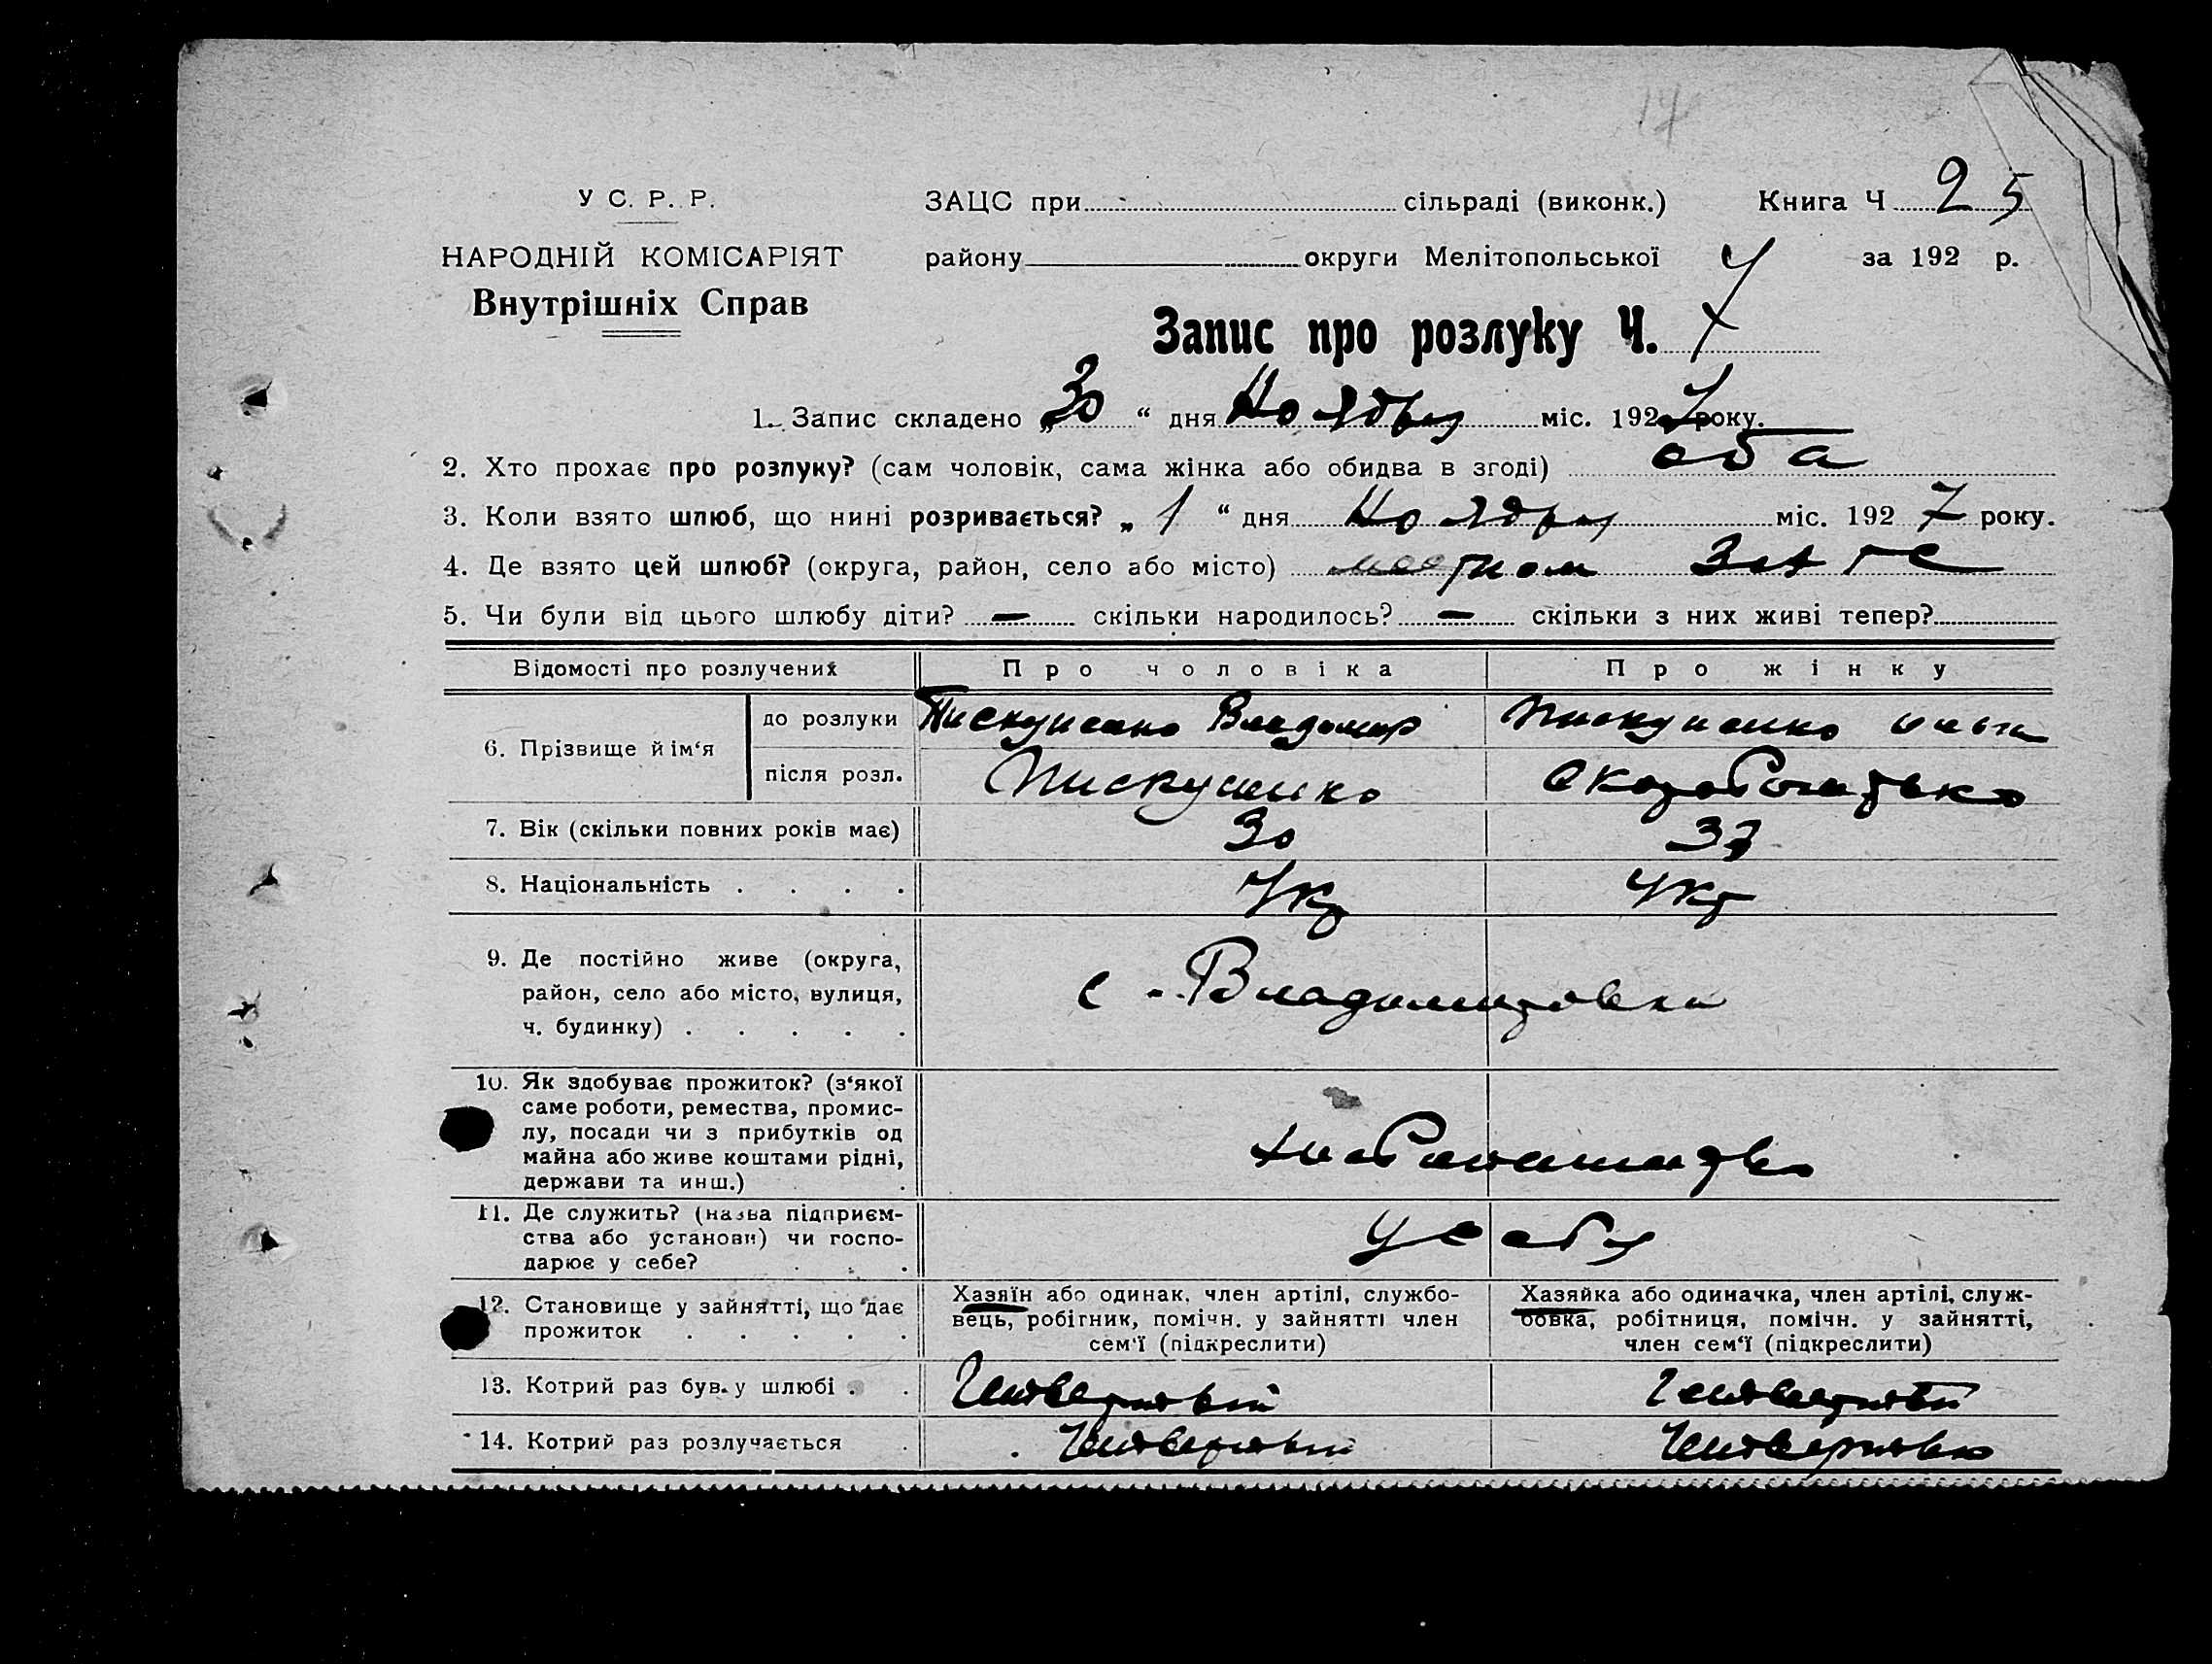 14
У С. Р. Р.
ЗАЦС при сільраді (виконк.) Книга Ч 25
НАРОДНІЙ КОМІСАРІЯТ
району округи Мелітопольської за 192 р.
Внутрішніх Справ
Запис про розлуку Ч.
1. Запис складено „30“ дня Ноября міс. 1927 року.
2. Хто прохає про розлуку? (сам чоловік, сама жінка або обидва в згоді) оба
3. Коли взято шлюб, що нині розривається? „1“ дня Ноября міс. 1927 року.
4. Де взято цей шлюб? (округа, район, село або місто) местном Загсе
5. Чи були від цього шлюбу діти? — скільки народилось? — скільки з них живі тепер?
Відомості про розлучених Про чоловіка Про жінку
6. Прізвище й ім‘я
до розлуки Пискуненко Владимир Пискуненко
після розл. Пискуненко
7. Вік (скільки повних років має) 30 33
8. Національність . . . . Укр Укр
9. Де постійно живе (округа, район, село або місто, вулиця, ч. будинку) . . . . .
с. Владимировка
10. Як здобуває прожиток? (з‘якої саме роботи, ремества, промислу, посади чи з прибутків од майна або живе коштами рідні, держави та инш.) .
хлебопашество
11. Де служить? (назва підприємства або установи) чи господарює у себе? . . .
у себя
12. Становище у зайнятті, що дає прожиток . . . . .
Хазяїн або одинак, член артілі, службовець, робітник, помічн. у зайнятті член сем‘ї (підкреслити)
Хазяйка або одиначка, член артілі, службовка, робітниця, помічн. у зайнятті, член сем‘ї (підкреслити)
13. Котрий раз був у шлюбі . . Четвертый Четвертый
14. Котрий раз розлучається . Четвертый